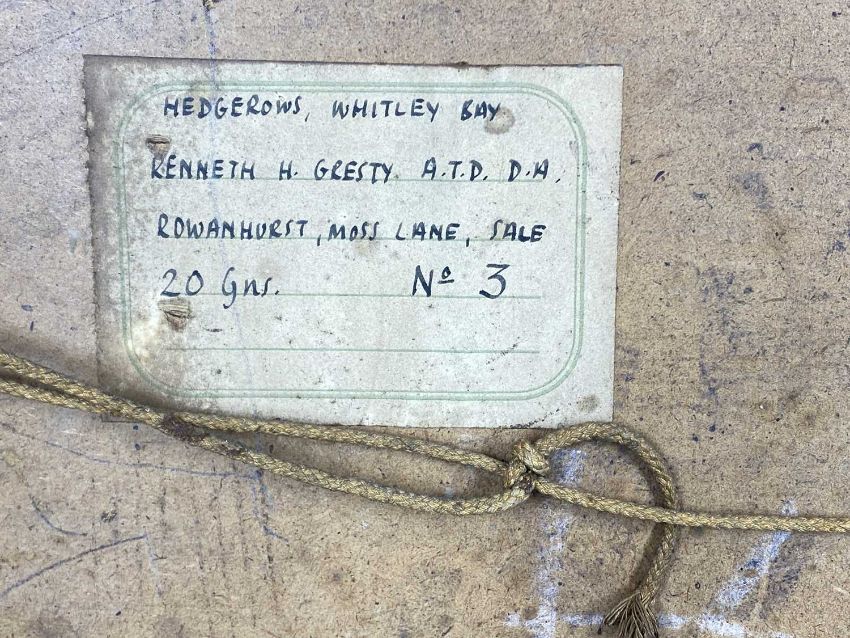 HEDGEROWS, WHITLEY BAY
KENNETH H. GRESTY. A.T.D. D.A.
ROWANHURST, MOSS LANE, SALE
20 Gns. Nº 3